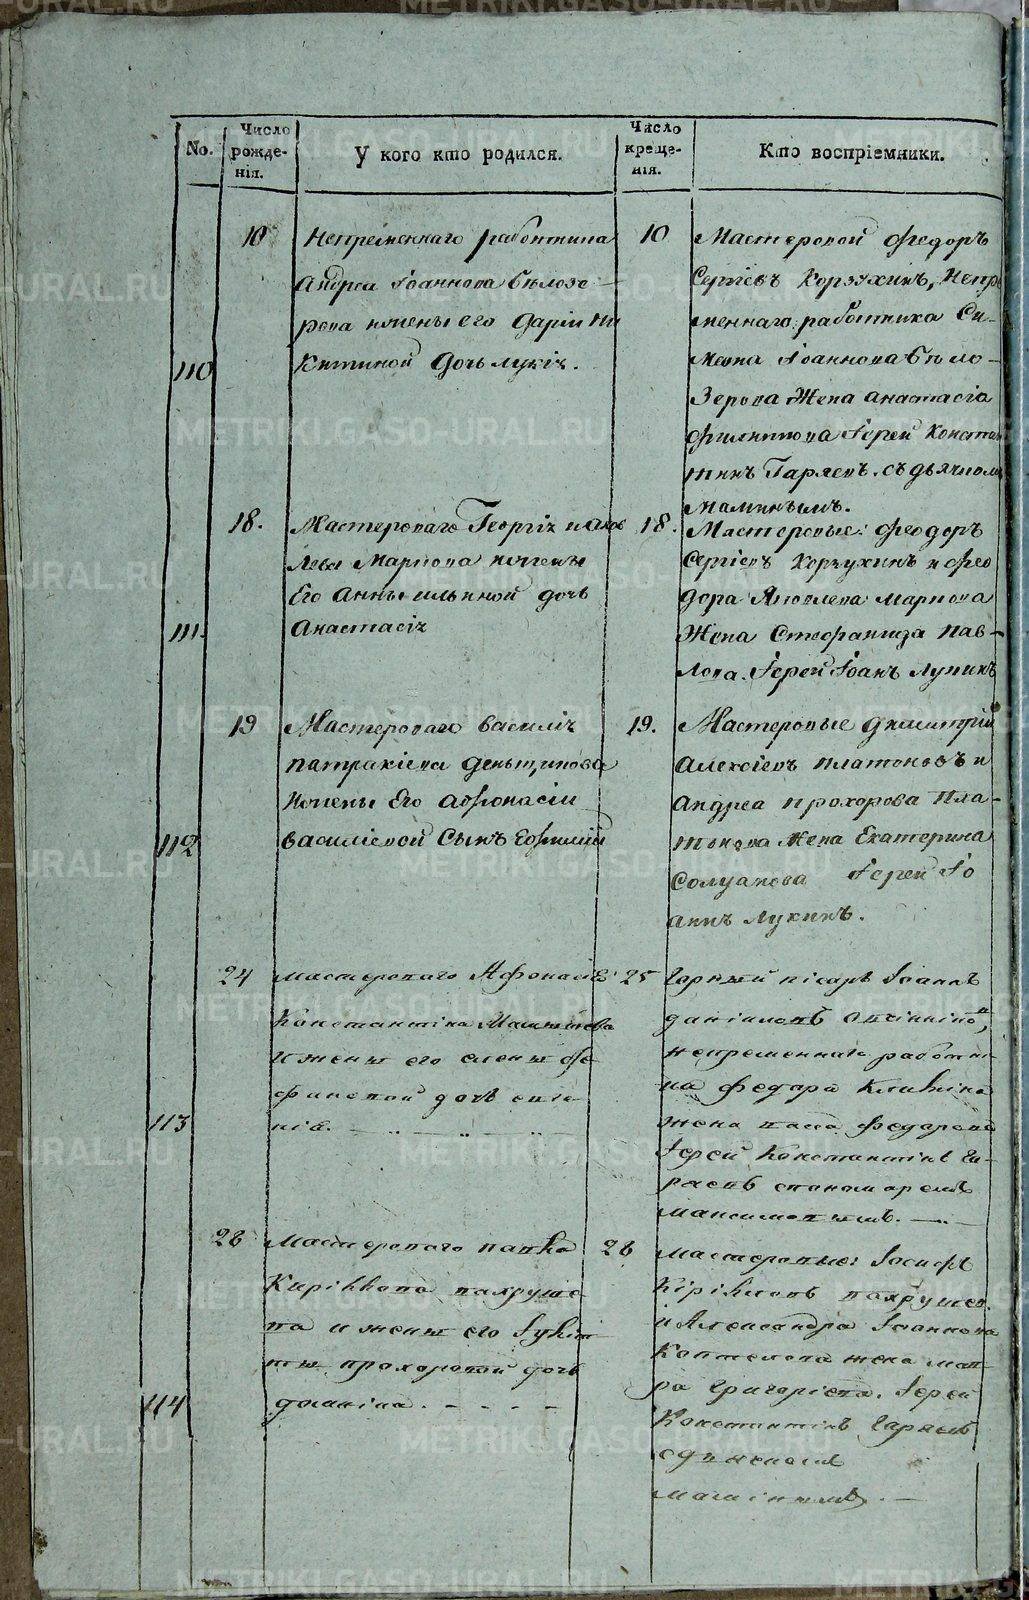 No.
Число рожде- нія.
У кого кто родился.
Число креще- нія.
Кто воспріемники.
110
10
Непременнаго работника
Андреа Іоаннова Бѣлозе-
рова и жены его Даріи Ни
китиной дочь Лукіа.
10
Мастеровой Федоръ
Сергіевъ Корзухинъ, Непре
меннаго работника Си-
меона Іоаннова Бѣло-
зерова Жена Анастасіа
Филиппова Іерей Констан
тинъ Гаряевъ. съ дьячкомъ
Маминымъ.
111.
18.
Мастероваго Георгіа Иаков
лева Маркова и жены
Его Анны Ильиной дочь
Анастасіа
18.
Мастеровые: Феодоръ
Сергіевъ Корзухинъ и Фео
дора Яковлева Маркова
Жена Стефанида Пав-
лова. Іерей Іоанъ Лукинъ
112
19
Мастероваго Василіа
Патракіева Деньщикова
и жены Его Афонасіи
Василіевой Сынъ Ефимій
19.
Мастеровые Димитрій
Алексіевъ Платоновъ и
Андреа Прохорова Пла-
тонова Жена Екатерина
Іерей Іо
аннъ Лукинъ.
113
24
Мастероваго Афонасіа
Константіна
и жены его Елены
дочь Евге
ніа.
25
Горный пісарь Іоаннъ
Даніиловъ
непременнаго работни
ка Федора
жена Федорова
Іерей Константінъ Га-
ряевъ спономаремъ
Максимовымъ.
114
28
Мастероваго Павла
Кирилова Пахруше
ва и жены его Іулит
ты Прохоровой дочь
Домніка.
28
Мастеровые: Іосифъ
Кіриловъ Пахрушев.
и Александра Іоаннова
Коптелова жена Мав-
ра Григоріева. Іерей
Константінъ Гаряевъ
сдьячкомъ
Маминымъ.
METRIKI.GASO-URAL.RU